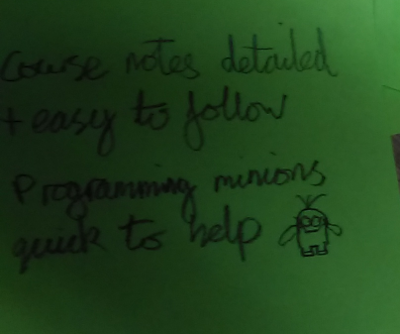 Course notes detailed
+ easy to follow
Programming minions
quick to help